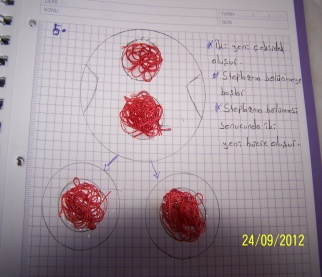 DERS
KONU
TARİH
GÜN
5.
* İki yeni çekirdek
oluşur.
* Stoplazma bölünmeye
başlar
* Stoplazma bölünmesi
sonucunda iki
yeni hücre oluşur.
24/09/2012